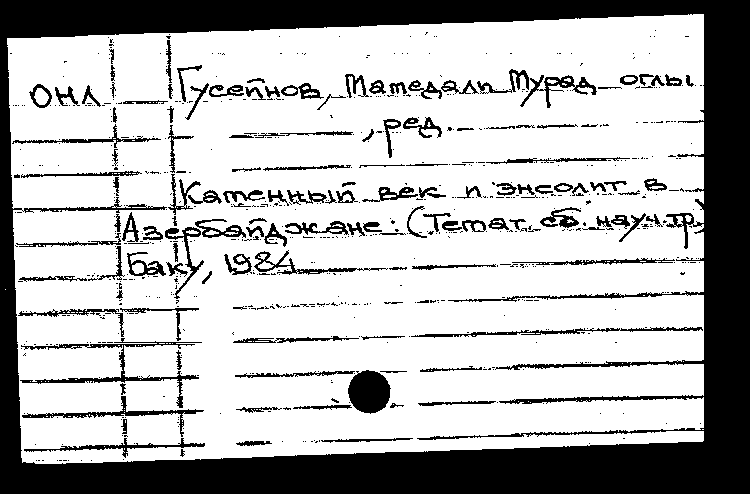 ОНЛ Гусейнов, Мамедали Мурад оглы
, ред.
Каменный век и энеолит в
Азербайджане: (Темат. сб. науч. тр.)
Баку, 1984